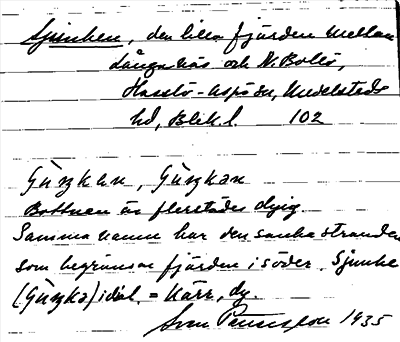 Sjunken, den lilla fjärden mellan
Långanäs och N. Bollö,
Hasslö-Aspö sn, Medelstads
hd, Blek. l. 102
Gùŋkən, Gùŋkan
Bottnen är flerstädes dyig.
Samma namn har den sanka stranden
som begränsar fjärden i söder. Sjunke
(Gùŋka) i dial. = kärr, dy.
Sven 1935